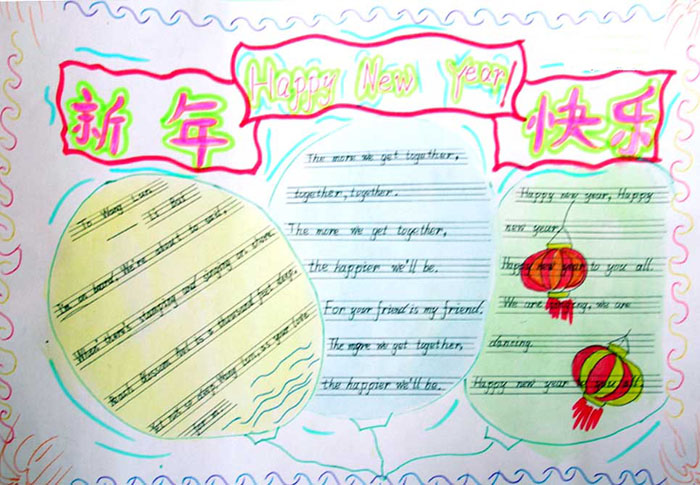 新年
Happy New Year
快乐
To Wang Lun
—— Li Bai
I'm on board. We're about to sail,
When there's stamping and singing on shore.
Peach blossom is a thousand feet deep.
Yet not so deep, Wang Lun, as your love
for me.
The more we get together,
together, together.
The more we get together,
the happier we'll be.
For your friend is my friend.
The more we get together,
the happier we'll be.
Happy new year, Happy
new year.
Happy new year to you all.
We are singing, we are
dancing.
Happy new year to you all.